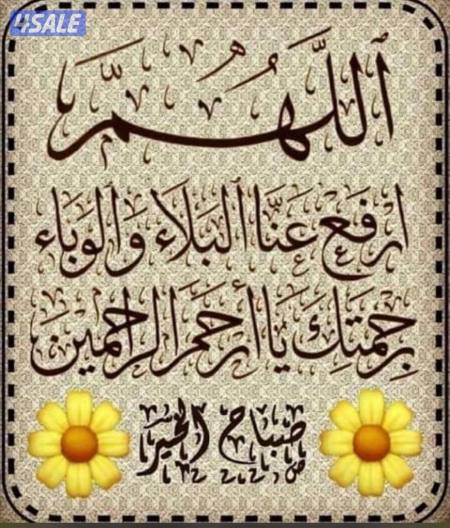 4SALE
اَللَّهُمَّ
ارْفَعْ عَنَّا الْبَلَاءَ وَالْوَبَاءَ
بِرَحْمَتِكَ يَا أَرْحَمَ الرَّاحِمِينَ
صباح الخير